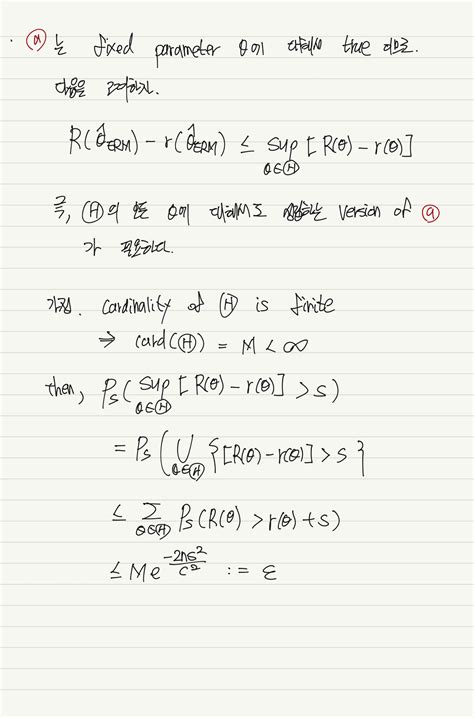 · ⓐ 는 fixed parameter θ에 대해서 true 이므로.
다음을 고려하자.
R(θ̂_ERM) − r(θ̂_ERM) ≤ sup_{θ∈Ⓗ} [R(θ) − r(θ)]
즉, Ⓗ의 모든 θ에 대해서도 성립하는 version of ⓐ
가 필요하다.
가정. cardinality of Ⓗ is finite
⇒ card(Ⓗ) = M < ∞
then, P_S( sup_{θ∈Ⓗ} [R(θ) − r(θ)] > s )
= P_S( ∪_{θ∈Ⓗ} { [R(θ) − r(θ)] > s }
≤ Σ_{θ∈Ⓗ} P_S(R(θ) > r(θ) + s)
≤ M e^{−2ns²/C²} := ε